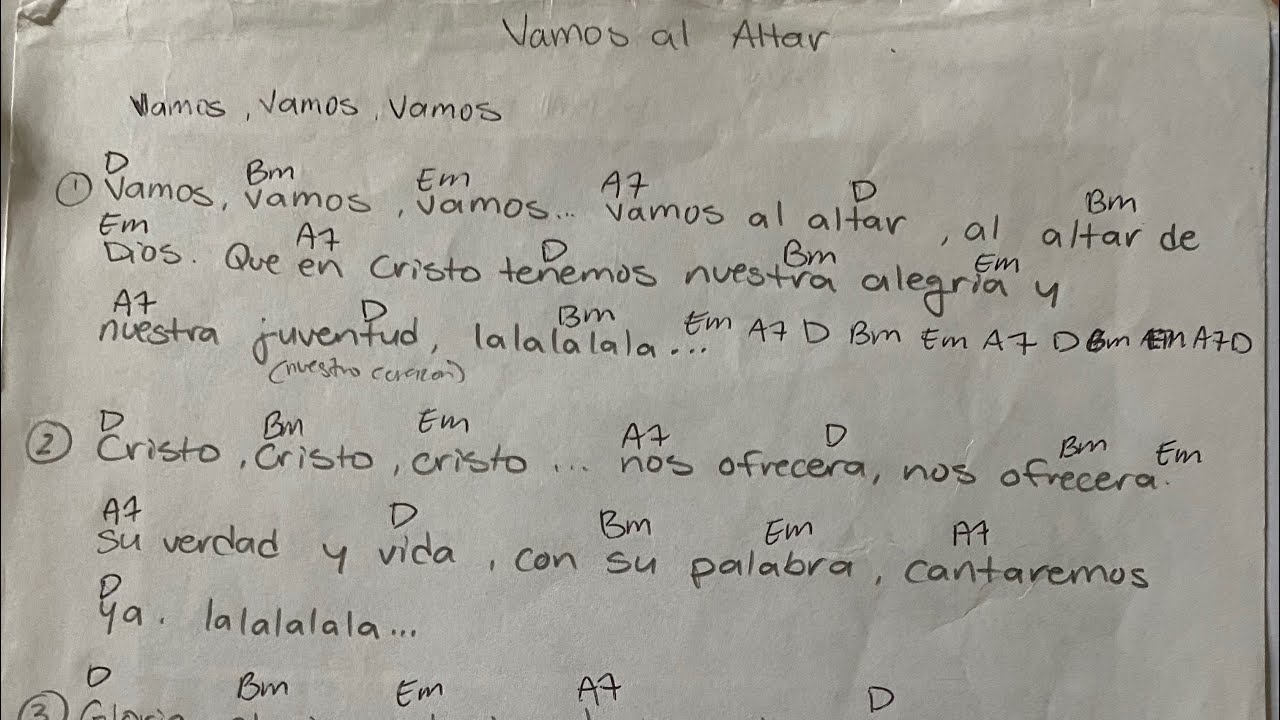 Vamos al Altar
Vamos, Vamos, Vamos
D Bm Em A7 D Bm
① Vamos, vamos, vamos... vamos al altar, al altar de
Em A7 D Bm Em
Dios. Que en Cristo tenemos nuestra alegria y
A7 D Bm
nuestra juventud, lalalalala... Em A7 D Bm Em A7 D Bm Em A7 D
(nuestro corazon)
D Bm Em A7 D Bm Em
② Cristo, Cristo, cristo... nos ofrecera, nos ofrecera.
A7 D Bm Em A7
su verdad y vida, con su palabra, cantaremos
D
ya. lalalalala...
D Bm Em A7 D
③